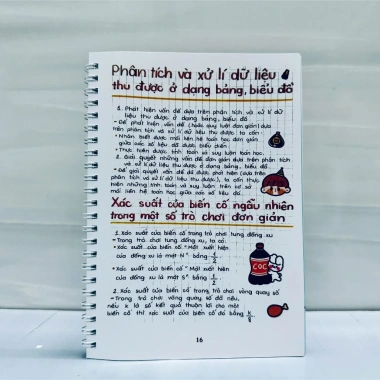 Phân tích và xử lí dữ liệu
thu được ở dạng bảng, biểu đồ
1. Phát hiện vấn đề dựa trên phân tích và xử lí
dữ liệu thu được ở dạng bảng, biểu đồ
- Để phát hiện vấn đề (hoặc quy luật đơn giản) dựa
trên phân tích và xử lí dữ liệu thu được ta cần:
• Nhận biết được mối liên hệ toán học đơn giản
giữa các số liệu đã được biểu diễn.
• Thực hiện được tính toán và suy luận toán học.
2. Giải quyết những vấn đề đơn giản dựa trên phân tích
và xử lí dữ liệu thu được ở dạng bảng, biểu đồ.
- Để giải quyết vấn đề đã được phát hiện (dựa trên
phân tích và xử lí dữ liệu thu được), ta cần thực
hiện những tính toán và suy luận trên cơ sở
mối liên hệ toán học giữa các số liệu đó.
Xác suất của biến cố ngẫu nhiên
trong một số trò chơi đơn giản
1. Xác suất của biến cố trong trò chơi tung đồng xu
- Trong trò chơi tung đồng xu, ta có:
• Xác suất của biến cố "Mặt xuất hiện
của đồng xu là mặt N" bằng 1/2
• Xác suất của biến cố "Mặt xuất hiện
của đồng xu là mặt S" bằng 1/2.
COC
2. Xác suất của biến cố trong trò chơi vòng quay số
- Trong trò chơi vòng quay số đã nêu,
nếu k là số kết quả thuận lợi cho một
biến cố thì xác suất của biến cố đó bằng k/8
16